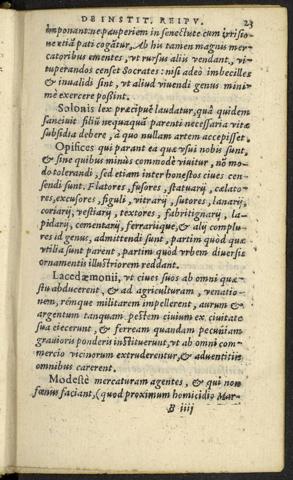 DE INSTIT. REIPV. 23
imponant: ne pauperiem in senectute cum irrisio-
ne etiã pati cogãtur. Ab hu tamen magnus mer-
catoribus ementes, vt rursus alijs vendant, vi-
tuperandos censet Socrates: nisi adeò imbecilles
& inualidi sint, vt aliud viuendi genus mini-
mè exercere possint.
Solonis lex præcipuè laudatur, qua quidem
sanciuit filiũ nequaquã parenti necessaria vitæ
subsidia debere, à quo nullam artem accepisset.
Opifices qui parant ea quæ vsui nobis sunt,
& sine quibus minùs commodè viuitur, nõ mo-
do tolerandi, sed etiam inter honestos ciues cen-
sendi sunt. Flatores, fusores, statuarij, cælato-
res, excusores, figuli, vitrarij, sutores, lanarij,
coriarij, vestiarij, textores, fabritignarij, la-
pidarij, cementarij, ferrarijque, & alij complu-
res id genus, admittendi sunt, partim quòd quæ
vtilia sunt parent, partim quòd vrbem diuersis
ornamentis illustriorem reddant.
Lacedæmonij, vt ciues suos ab omni quæ-
stu abducerent, & ad agriculturam, venatio-
nem, rémque militarem impellerent, aurum &
argentum tanquam pestem ciuium ex ciuitate
sua eiecerunt, & ferream quandam pecuniam
grauioris ponderis instituerunt, vt ab omni com-
mercio vicinorum extruderentur, & aduentitiis
omnibus carerent.
Modestè mercaturam agentes, & qui non
fœnus faciant, (quod proximum homicidio Mar-
B iiij